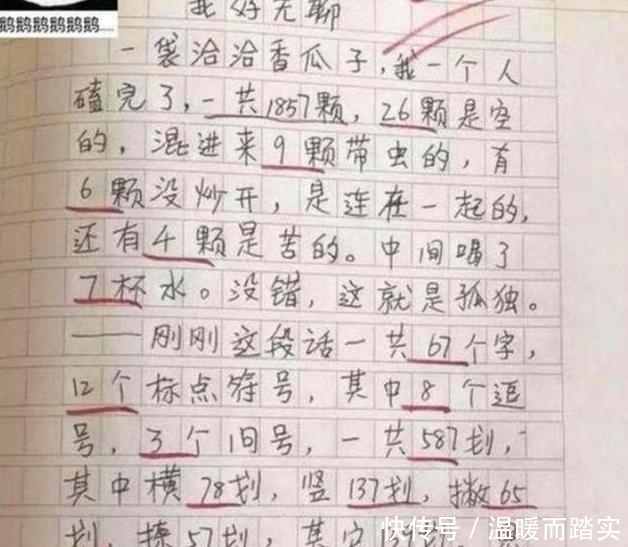 鹅鹅鹅鹅鹅鹅鹅......
我好无聊
一袋洽洽香瓜子，我一个人
磕完了，一共1857颗，26颗是空
的，混进来9颗带虫的，有
6颗没炒开，是连在一起的，
还有4颗是苦的。中间喝了
7杯水。没错，这就是孤独。
——刚刚这段话一共67个字，
12个标点符号，其中8个逗
号，3个句号，一共587划，
其中横78划，竖137划，撇65
划，捺57划，其它
快传号／温暖而踏实